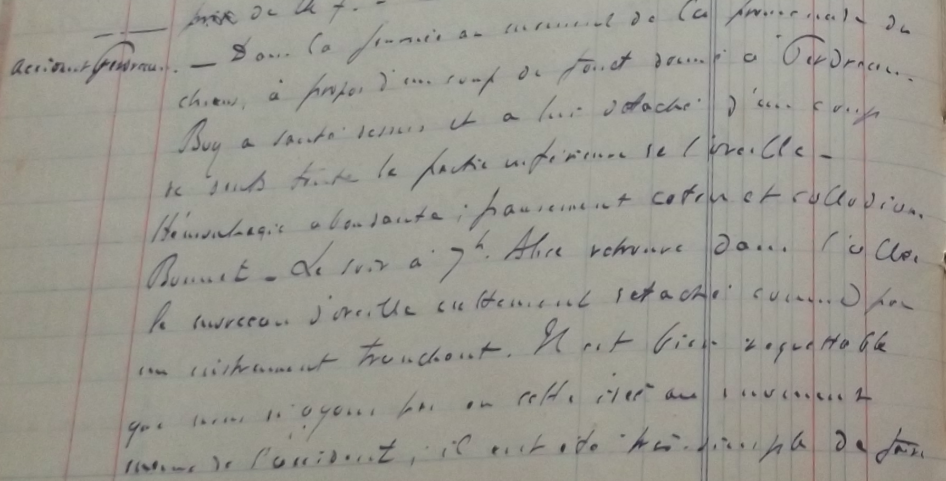 de la
accident Perdreau. — Dans la journée au moment de la promenade du
chien, à propos d'un coup de fouet donné à Perdreau.
Boy a sauté dessus et a lui détaché d'un coup
de dents toute la partie inférieure de l'oreille —
Hémorhagie abondante ; pansement coton et collodion.
Bonnet — Le soir à 7h. Alice retrouve dans l'allée
le morceau d'oreille nettement détaché comme par
un instrument tranchant. Il est bien regrettable
que nous n'ayons pas eu cette idée au moment
même de l'accident, il eut été très simple de faire